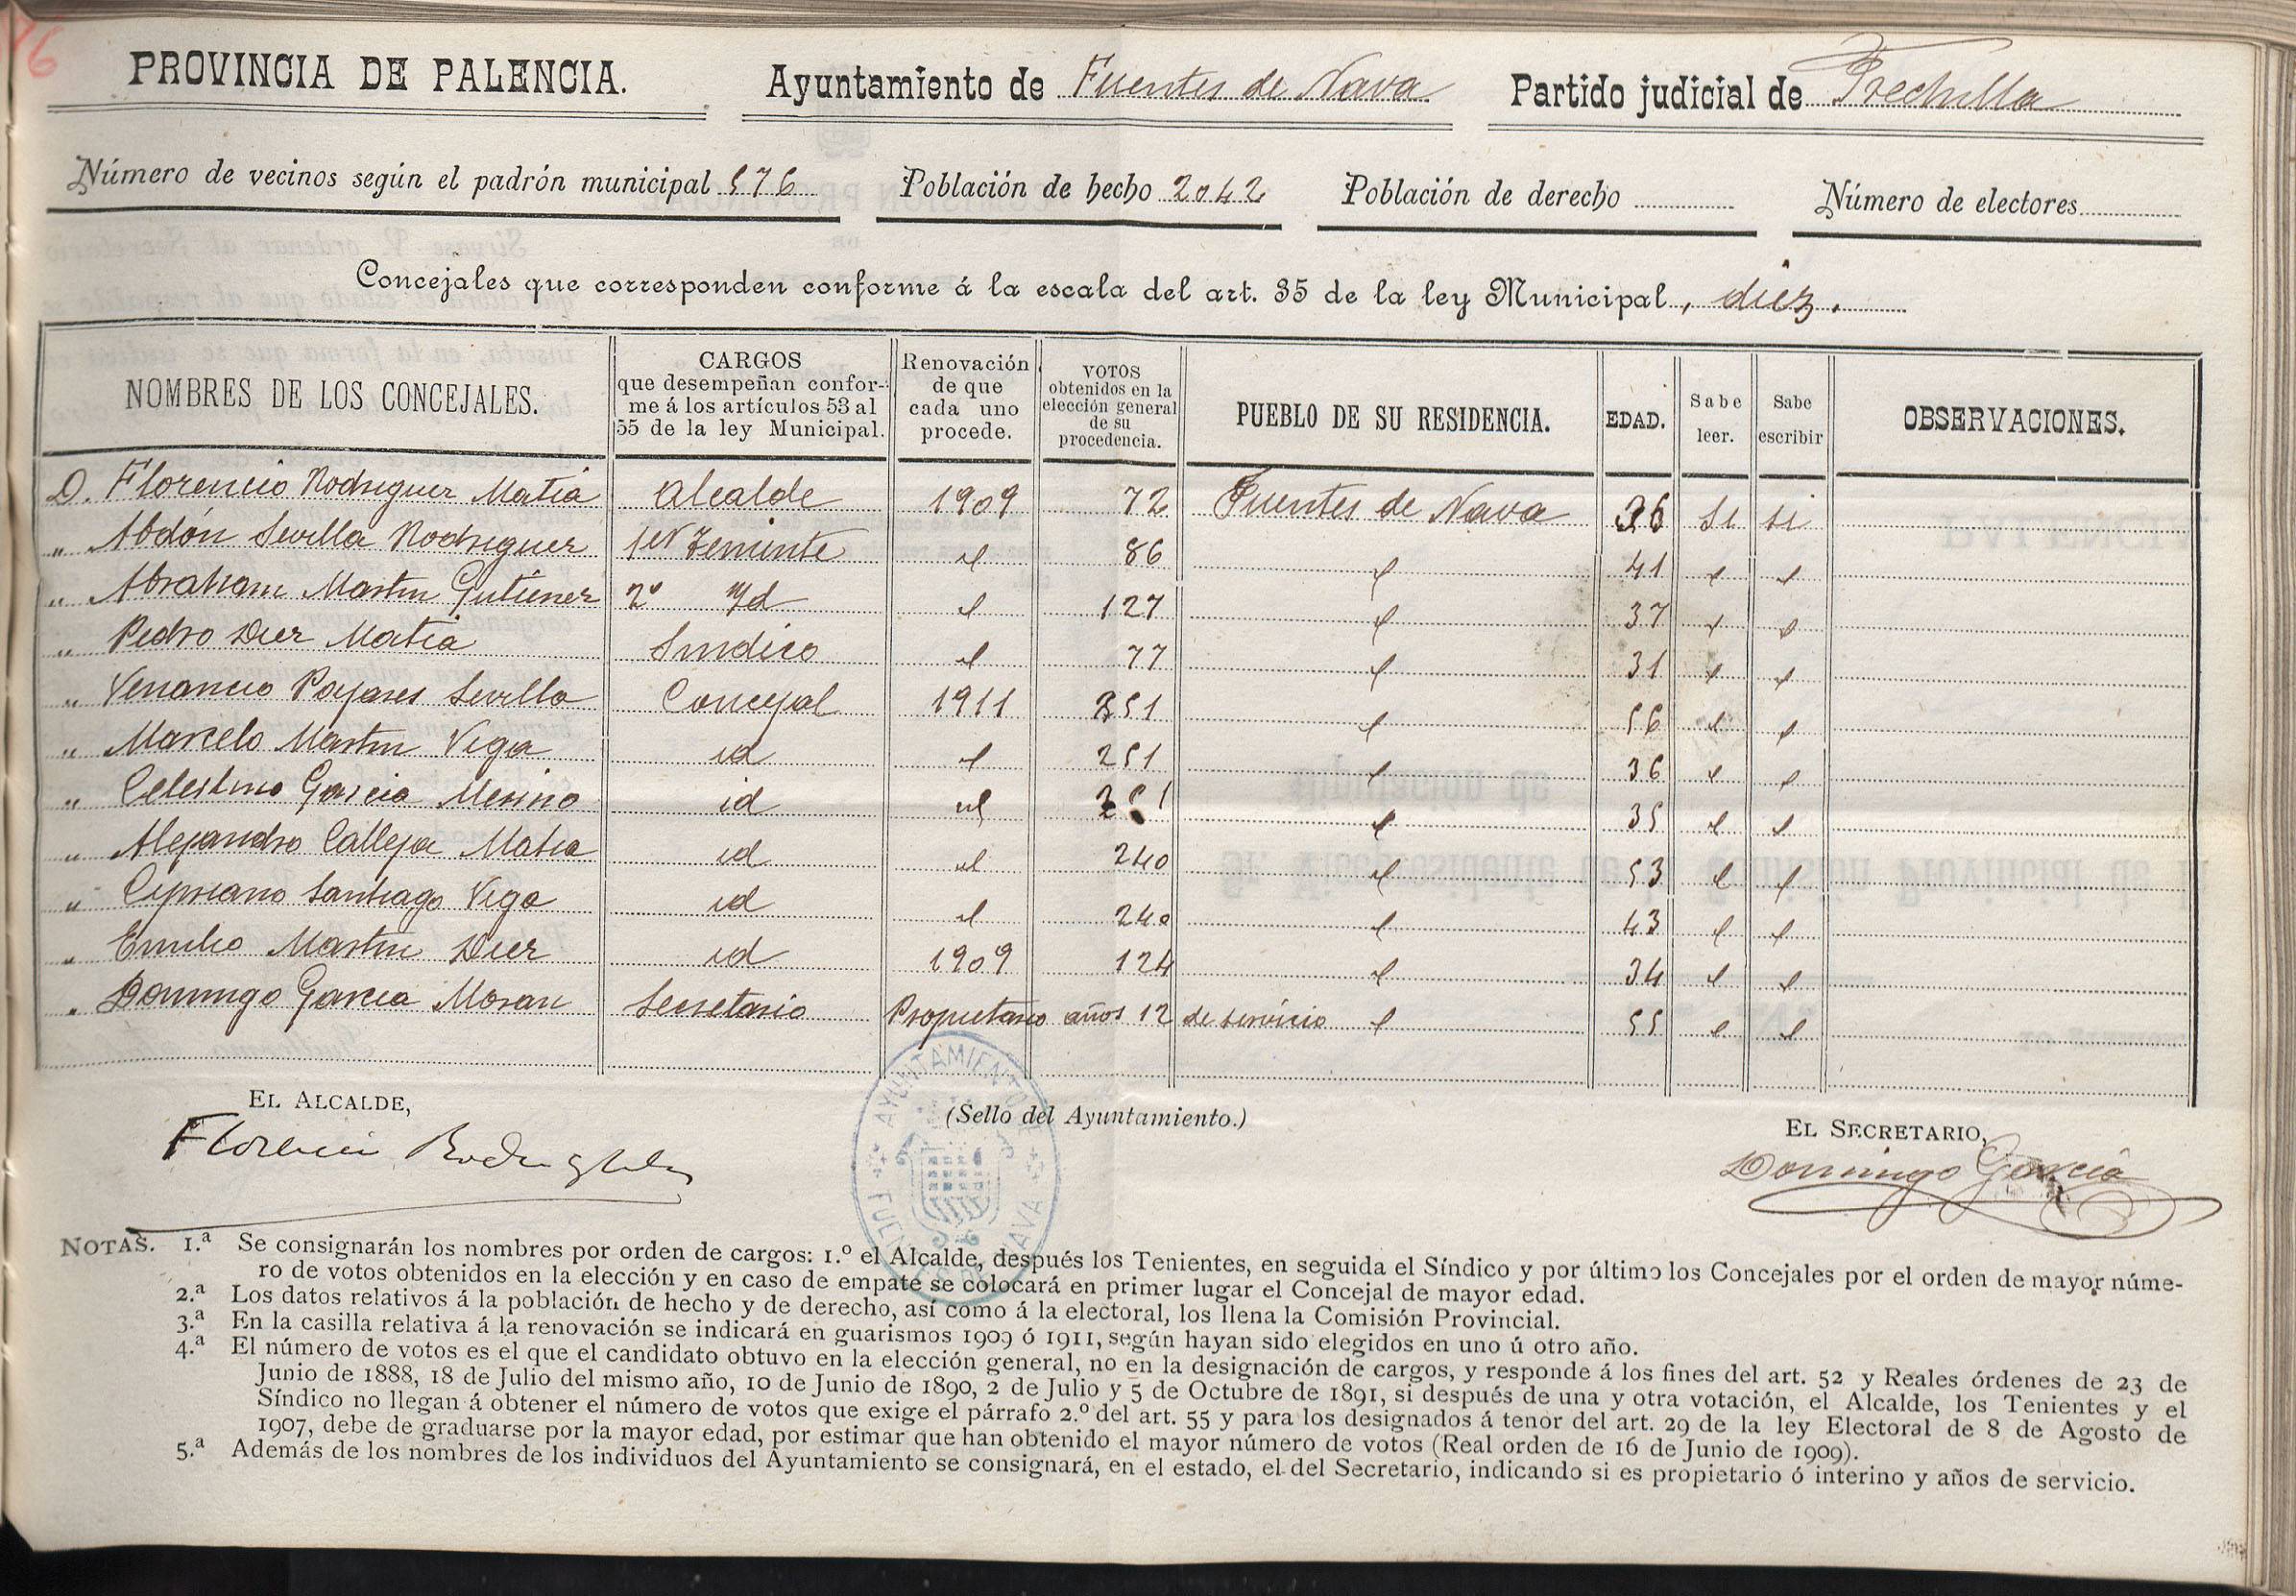 76
PROVINCIA DE PALENCIA. Ayuntamiento de Fuentes de Nava Partido judicial de Frechilla
Número de vecinos según el padrón municipal 576 Población de hecho 2042 Población de derecho Número de electores
Concejales que corresponden conforme á la escala del art. 35 de la ley Municipal, diez.
NOMBRES DE LOS CONCEJALES. CARGOS que desempeñan conforme á los artículos 53 al 55 de la ley Municipal. Renovación de que cada uno procede. VOTOS obtenidos en la elección general de su procedencia. PUEBLO DE SU RESIDENCIA. EDAD. Sabe leer. Sabe escribir OBSERVACIONES.
D. Florencio Rodriguez Matia Alcalde 1909 72 Fuentes de Nava 36 si si
" Abdón Sevilla Rodriguez 1er Teniente " 86 " 41 " "
" Abraham Martin Gutierrez 2º id " 127 " 37 " "
" Pedro Diez Matia Sindico " 77 " 31 " "
" Venancio Payares Sevilla Concejal 1911 251 " 56 " "
" Marcelo Martin Vega id " 251 " 36 " "
" Celestino Garcia Merino id " 251 " 35 " "
" Alejandro Calleja Matia id " 240 " 53 " "
" Cipriano Santiago Vega id " 240 " 43 " "
" Emilio Martin Diez id 1909 124 " 34 " "
" Domingo Garcia Moran Secretario Propietario años 12 de servicio " 55 " "
EL ALCALDE, (Sello del Ayuntamiento.) EL SECRETARIO,
Florencio Rodriguez Domingo Garcia
AYUNTAMIENTO FUENTES NAVA
NOTAS. 1.ª Se consignarán los nombres por orden de cargos: 1.º el Alcalde, después los Tenientes, en seguida el Síndico y por último los Concejales por el orden de mayor núme-
ro de votos obtenidos en la elección y en caso de empate se colocará en primer lugar el Concejal de mayor edad.
2.ª Los datos relativos á la población de hecho y de derecho, así como á la electoral, los llena la Comisión Provincial.
3.ª En la casilla relativa á la renovación se indicará en guarismos 1909 ó 1911, según hayan sido elegidos en uno ú otro año.
4.ª El número de votos es el que el candidato obtuvo en la elección general, no en la designación de cargos, y responde á los fines del art. 52 y Reales órdenes de 23 de
Junio de 1888, 18 de Julio del mismo año, 10 de Junio de 1890, 2 de Julio y 5 de Octubre de 1891, si después de una y otra votación, el Alcalde, los Tenientes y el
Síndico no llegan á obtener el número de votos que exige el párrafo 2.º del art. 55 y para los designados á tenor del art. 29 de la ley Electoral de 8 de Agosto de
1907, debe de graduarse por la mayor edad, por estimar que han obtenido el mayor número de votos (Real orden de 16 de Junio de 1909).
5.ª Además de los nombres de los individuos del Ayuntamiento se consignará, en el estado, el del Secretario, indicando si es propietario ó interino y años de servicio.